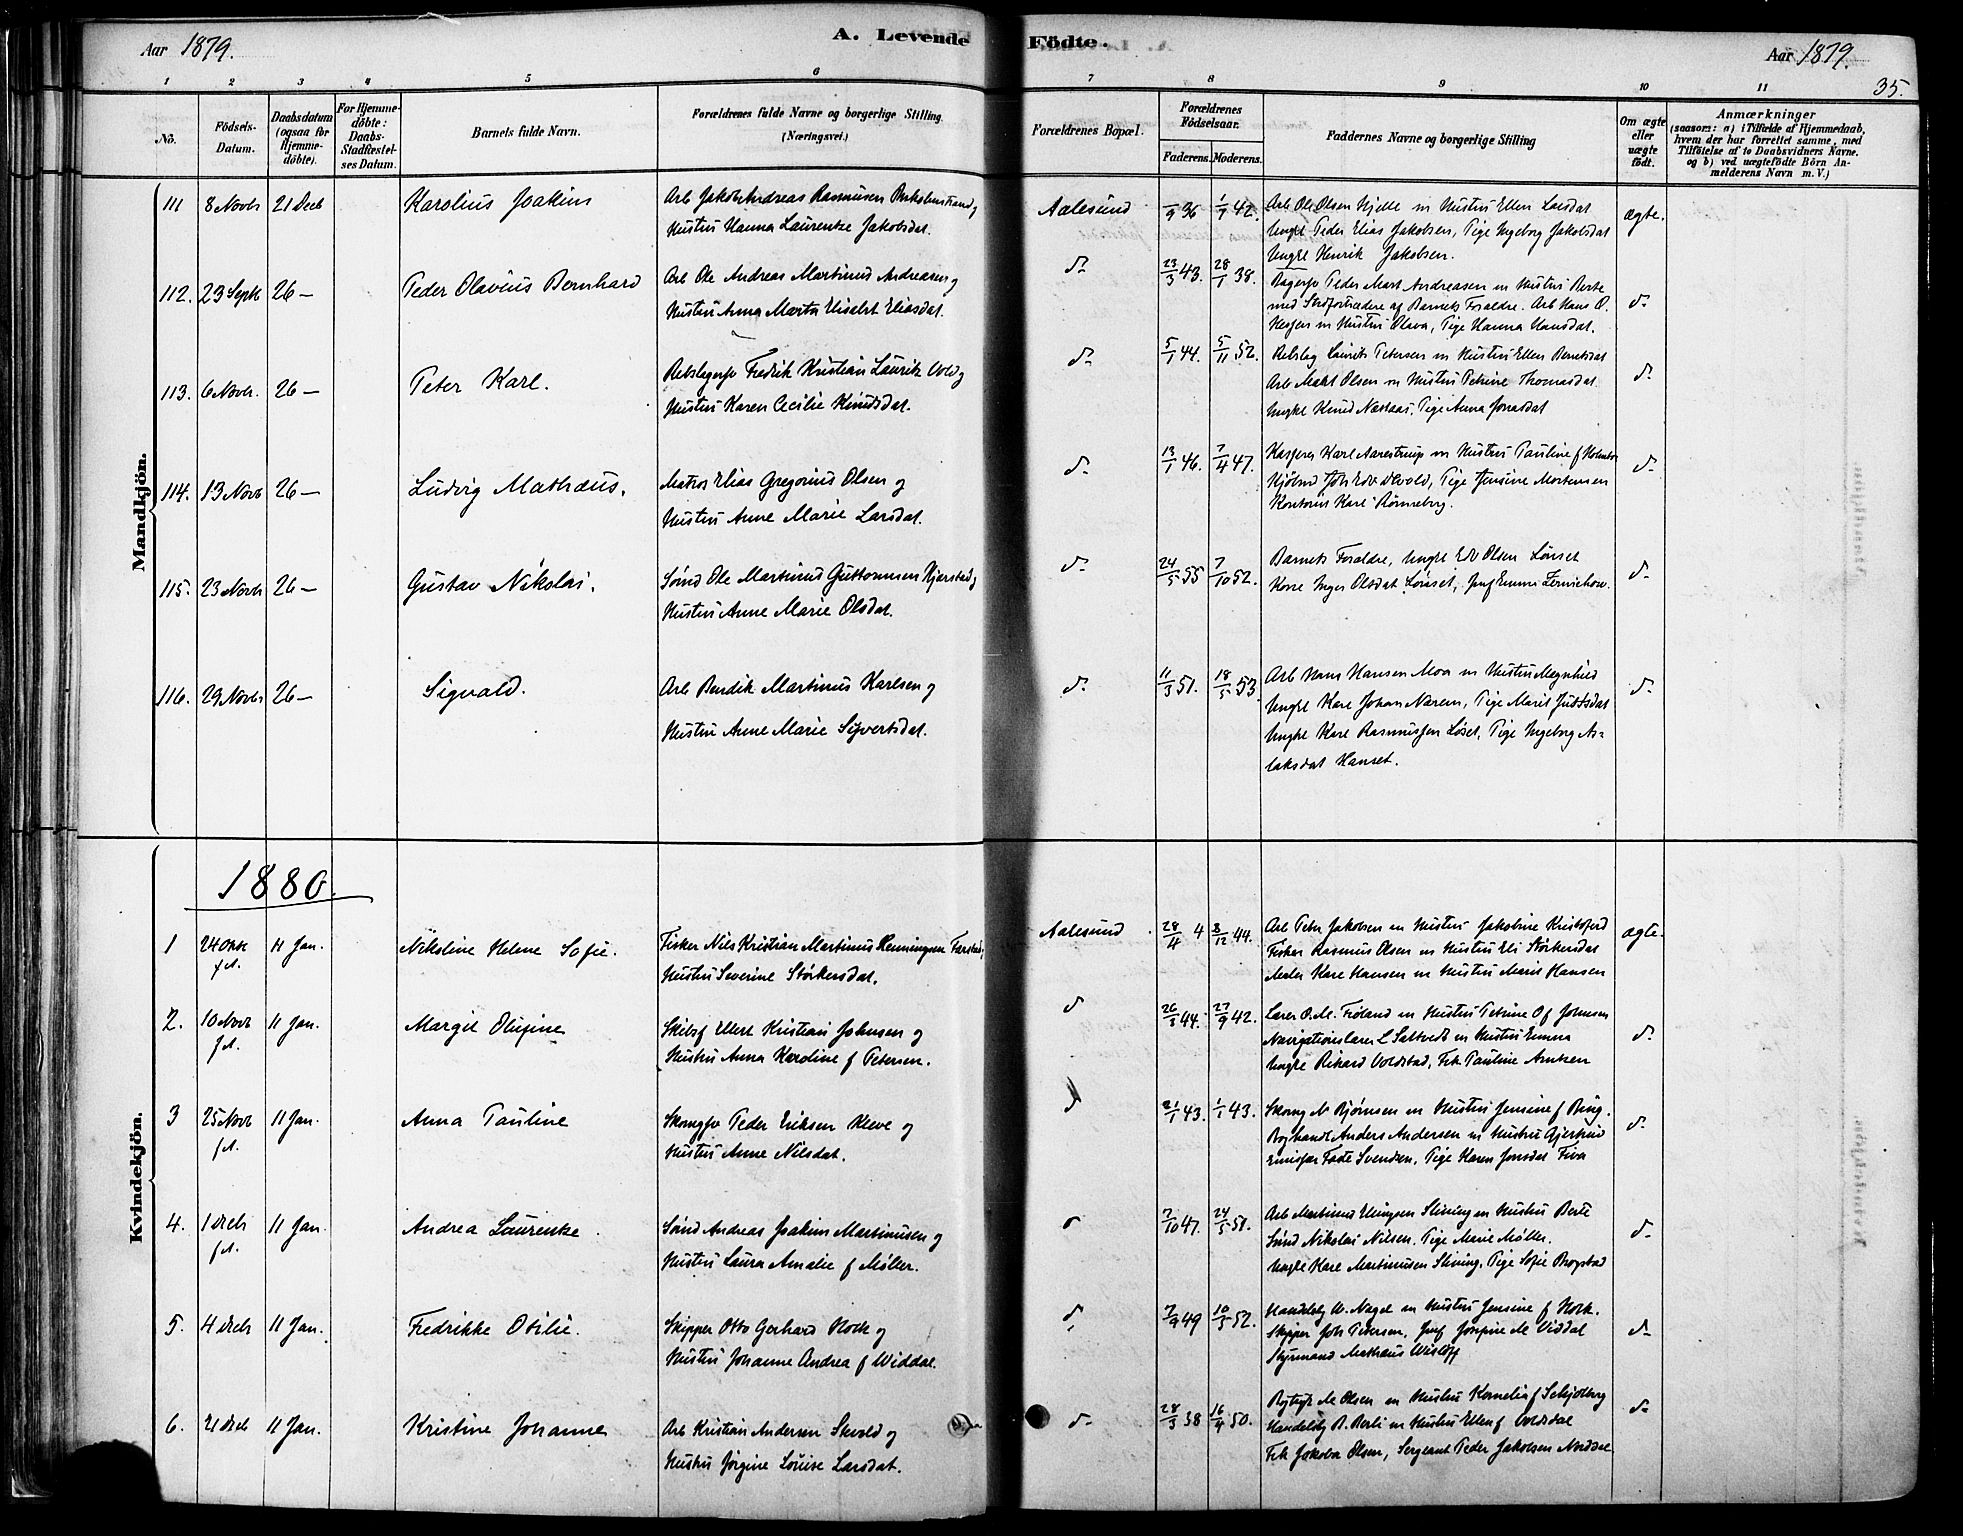 Aar 1879.
A. Levende
Födte.
Aar 1879.
35.
1 2 3 4 5 6 7 8 9 10 11
No.
Födsels-Datum.
Daabsdatum (ogsaa for Hjemme-döbte).
For Hjemme-döbte: Daabs-Stadfæstel-ses Datum.
Barnets fulde Navn.
Forældrenes fulde Navne og borgerlige Stilling (Næringsvei.)
Forældrenes Bopæl.
Forældrenes Födselsaar.
Faderens. Moderens.
Faddernes Navne og borgerlige Stilling
Om ægte eller uægte födt.
Anmærkninger
(saasom: a) i Tilfælde af Hjemmedaab,
hvem der har forrettet samme, med
Tilföielse af to Daabsvidners Navne.
og b) ved uægtefödte Börn An-
melderens Navn m. V.)
Mandkjön.
111 8 Novb 21 Decb Karolius Joakim
Arb Jakob Andreas Rasmusen
Hustru Hanna Laurentze Jakobsdat.
Aalesund 1/9 36 1/7 42.
Arb Ole Olsen Hjelle m Hustru Ellen Larsdat
Ungkl Peder Elias Jakobsen, Pige Ingeborg Jakobsdat
Ungkl Henrik Jakobsen.
ægte.
112. 23 Septb 26 — Peder Olavius Bernhard
Arb Ole Andreas Martinus Andreasen og
Hustru Anna Marta Elisabt Eliasdat.
d- 23/3 43. 28/1 38.
Bagersv Peder Mart Andreasen m Hustru Berte
med Stedfortrædere af Barnets Foraldre. Arb Hans O.
Hessen m Hustru Olava, Pige Hanna Hansdat.
d-
113. 6 Novb. 26 — Peter Karl.
Rebslagersv Fredrik Kristian Laurits Vold og
Hustru Karen Cecilie Knudsdat.
d- 5/1 44. 5/11 52.
Rebslag Laurits Petersen m Hustru Ellen Berntsdat
Arb Olsen m Hustru Petrine Thomasdat
Ungkl Knud Næstaas, Pige Anna Jonasdat
d-
114. 13 Novb 26 — Ludvig Mathæus.
Matros Elias Gregorius Olsen og
Hustru Anne Marie Larsdat.
d- 13/1 46. 7/4 47.
Kasserer Karl Aarestrup m Hustru Pauline f Holmbo
Kjöbmd Joh Edv Devold, Pige Jensine Mortensen
Kontorist Karl Rönneberg.
d-
115. 23 Novb 26 — Gustav Nikolai.
Smd Ole Martinus Guttormsen Hjerstad og
Hustru Anne Marie Olsdat.
d- 24/5 55 7/10 52.
Barnets Foraldre, Ungkl Edv Olsen Lönset
Kone Inger Olsdat Lönset, Jmf Emma
d-
116. 29 Novb 26 — Sigvald.
Arb Bendik Martinus Karlsen og
Hustru Anne Marie Syvertsdat.
d- 11/3 51. 18/5 53.
Arb Hans Hansen Moa m Hustru Magnhild
Ungkl Karl Johan Nærem, Pige Marit Justsdat
Ungkl Karl Rasmussen Löset, Pige Ingeborg As-
laksdat Hanset.
d-
1880.
Kvindekjön.
1 24 Okt f.A. 11 Jan. Nikoline Helene Sofie.
Fisker Nils Kristian Martinus Henningsen Farstad
Hustru Severine Störkersdat.
Aalesund. 28/4 4 8/12 44.
Arb Peter Jakobsen m Hustru Jakobine
Fisker Rasmus Olsen m Hustru Eli Störkersdat
Maler Karl Hansen m Hustru Marie Hansen
ægte.
2. 10 Novb f.A. 11 Jan. Margit Olufine
Skibsf Ellert Kristian Johnsen og
Hustru Anna Karoline f Petersen.
d 26/3 44. 27/9 42.
Lærer O. M. Fröland m Hustru Petrine O f Johnsen
Navigationslærer L Saltvedt m Hustru Emma
Ungkl Rikard Voldstad, Frk Pauline Arntzen
d-
3 25 Novb f.A. 11 Jan. Anna Pauline
Skomsv Peder Eriksen Kleve og
Hustru Anne Nilsdat.
d 21/1 43. 1/1 43.
Skomg N Björnsen m Hustru Jensine f Ring.
Boghandl Anders Andersen m Hustru Gjertrud
Emissær Svendsen, Pige Karen Jonsdat Fiva
d-
4. 1 Decb f.A. 11 Jan. Andrea Laurentze.
Smd Andreas Joakim Martinusen og
Hustru Laura Amalie f Möller.
d 7/10 47. 24/5 51.
Arb Martinus Elingsen Slining m Hustru Berte
Smd Nikolai Nilsen, Pige Marie Möller.
Ungkl Karl Martinusen Slining, Pige Sofie Brogstad
d-
5. 4 Decb 11 Jan. Fredrikke Otilie.
Skipper Otto Gerhard Rock og
Hustru Johanne Andrea f Widdal.
d- 7/9 49 10/3 52.
Handelsb W. Nagel m Hustru Jensine f Rock.
Skipper Joh Pedersen, Jmf Josefine M Viddal
Styrmand Mathæus Wislöff
d-
6. 21 Decb 11 Jan. Kristine Johanne
Arb Kristian Andersen Skvold og
Hustru Jörgine Louise Larsdat.
d- 28/3 38 16/4 50.
M Olsen m Hustru Kornelia f Schjelberg
Handelsb R. Berli m Hustru Ellen f Voldsdal
Frk Jakoba Olsen, Sergeant Peder Jakobsen Norddal
d-